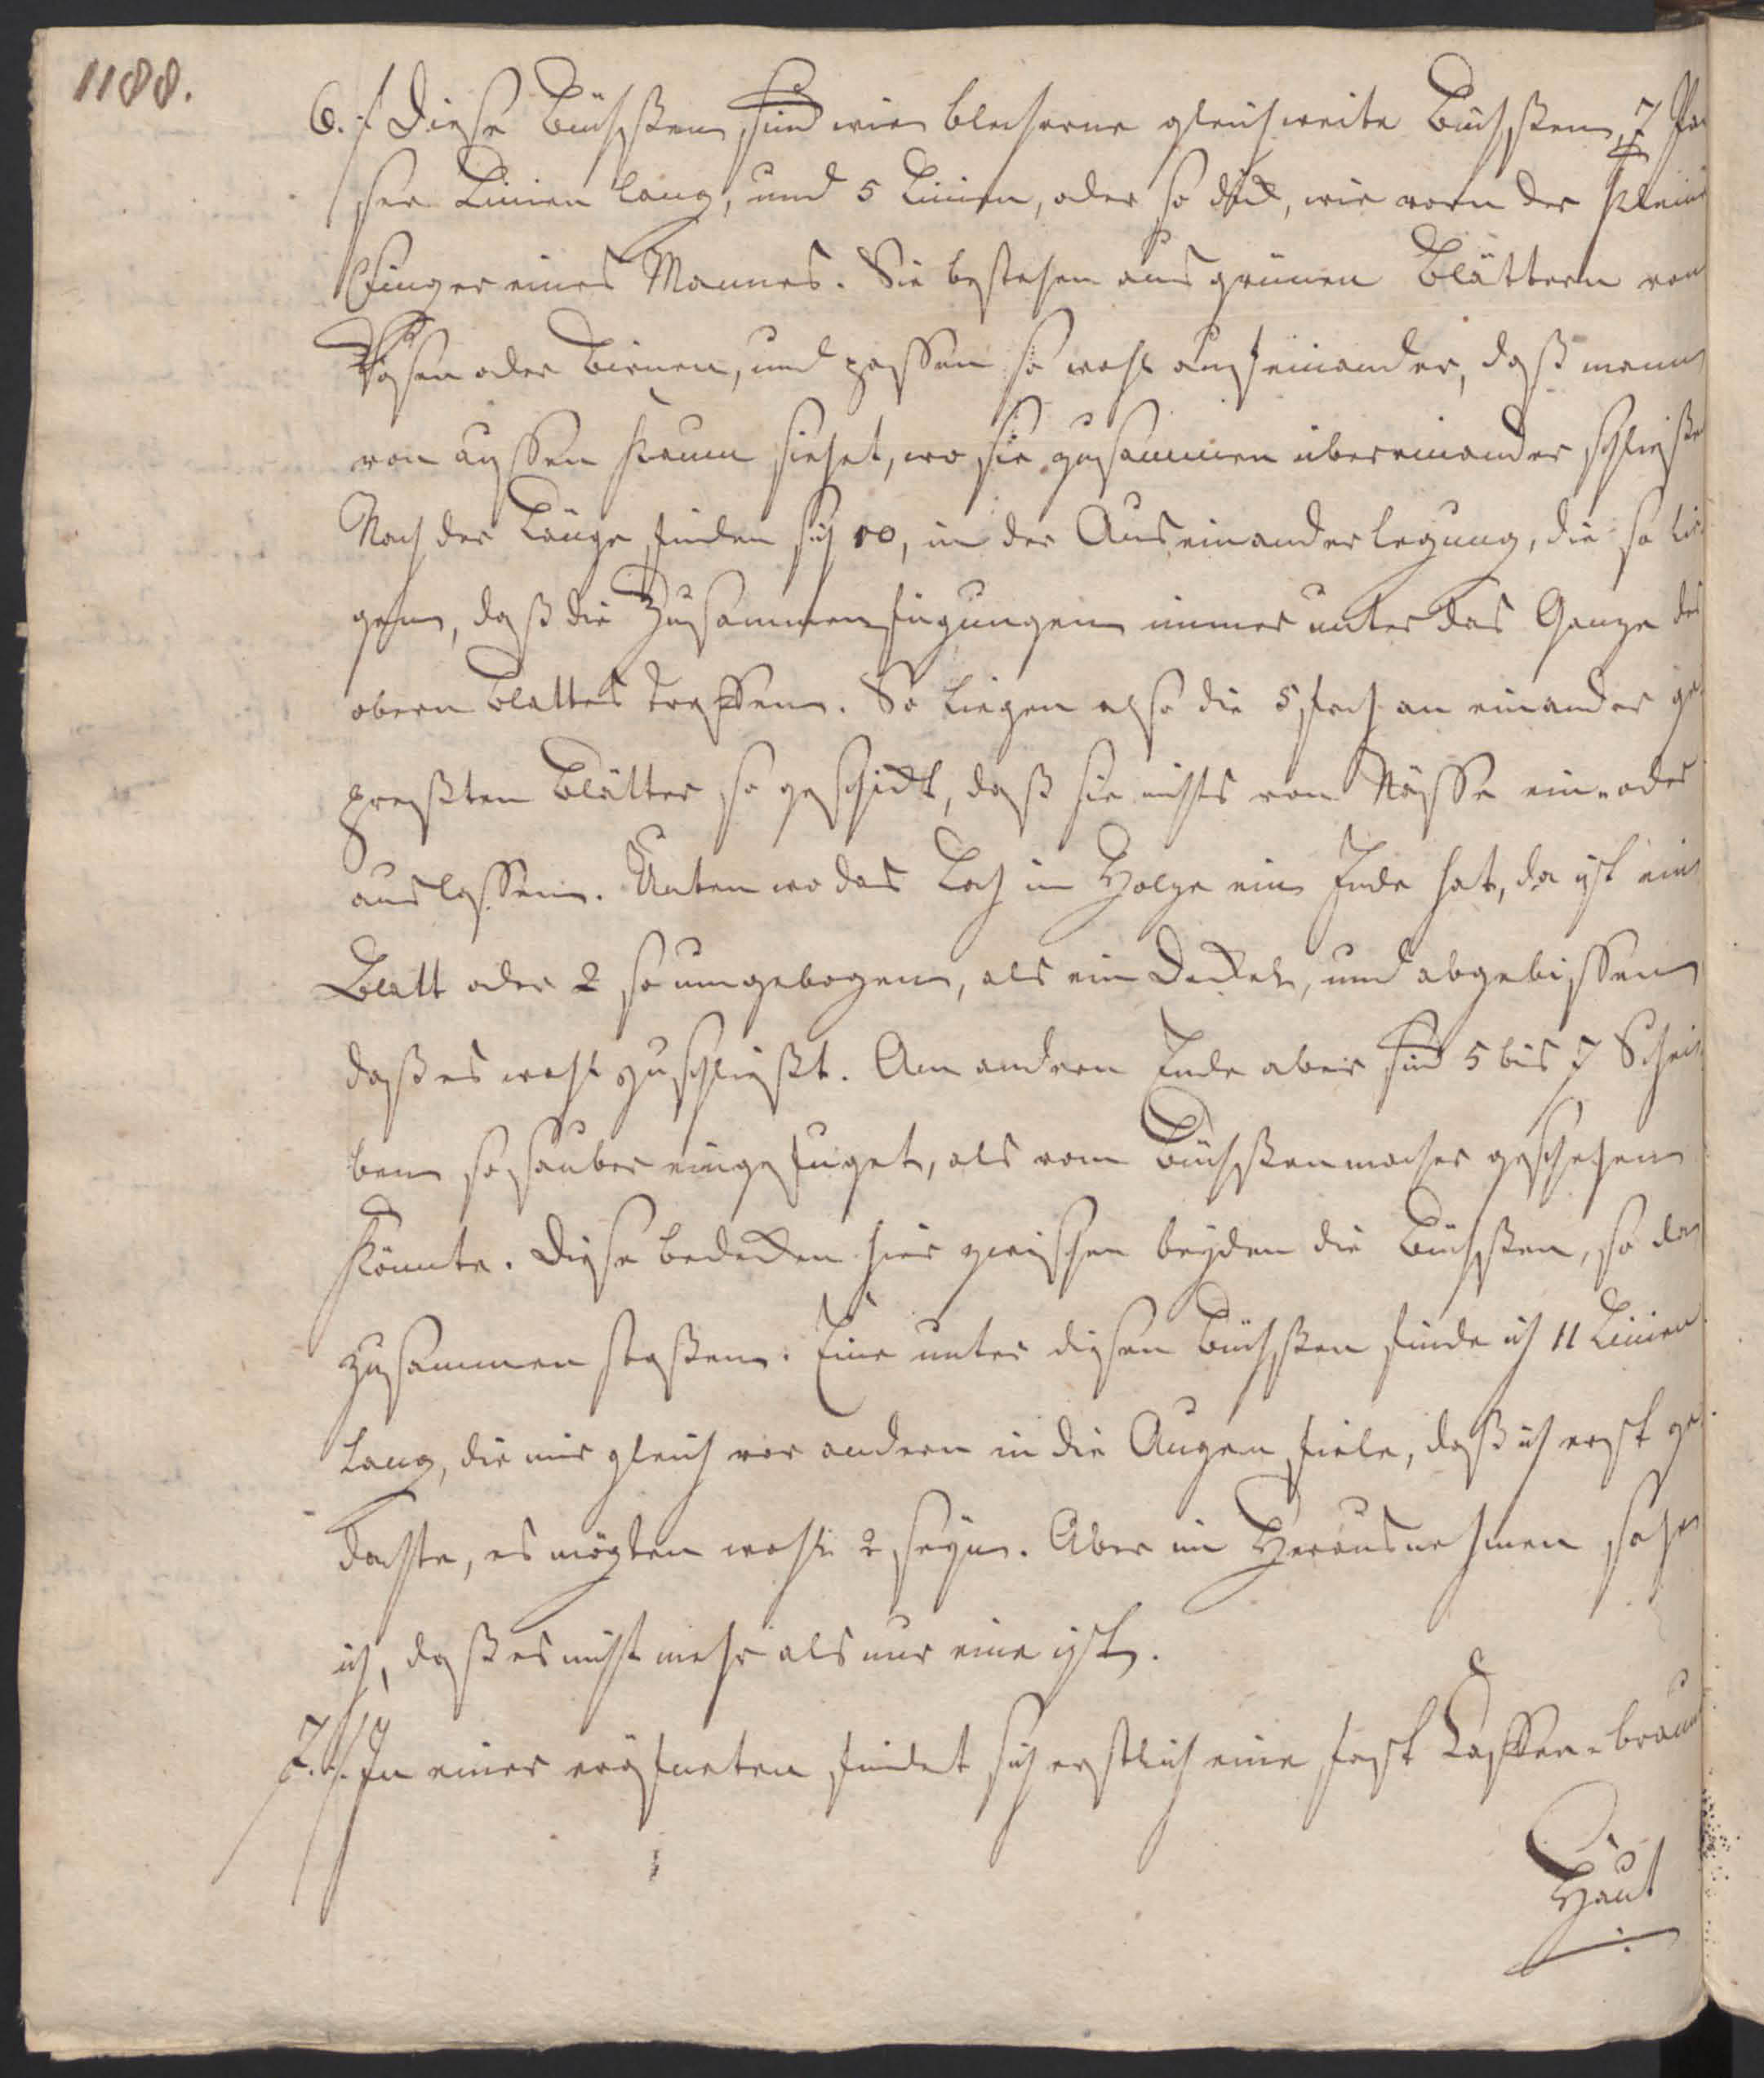 1188.
6. Diese Büchßen sind wie blecherne gleichweite Büchßen, 7 Pari
ser Linien lang, und 5 Linien, oder so dick, wie vorn der kleine
Finger eines Mannes. Sie bestehen aus grünen Blättern von
Rosen oder Birnen, und passen so wohl aufeinander, daß man
von aussen kaum siehet, wo sie zusammen übereinander schließen
Nach der Länge finden sich 10, in der Auseinanderlegung, die so lie
gen, daß die Zusammenfügungen immer unter das Ganze des
obern Blattes treffen. So liegen also die 5fach an einander ge
preßten Blätter so geschickt, daß sie nichts von Nässe ein- oder
auslassen. Unten wo das Loch im Holze ein Ende hat, da ist ein
Blatt oder 2 so umgebogen, als ein Deckel, und abgebissen
daß es wohl zuschließt. Am andern Ende aber sind 5 bis 7 Schei
ben so sauber eingefüget, als vom Büchßenmacher geschehen
könnte. Diese bedecken hier zwischen beyden die Büchßen, so da
zusammen stoßen. Eine unter diesen Büchßen finde ich 11 Linien
lang, die mir gleich vor andern in die Augen fiele, daß ich erst ge
dachte, es mögten wohl 2 seyn. Aber im Herausnehmen sahe
ich, daß es nicht mehr als nur eine ist.
7. In einer eröfneten findet sich erstlich eine fast Caffee-braune
Haut